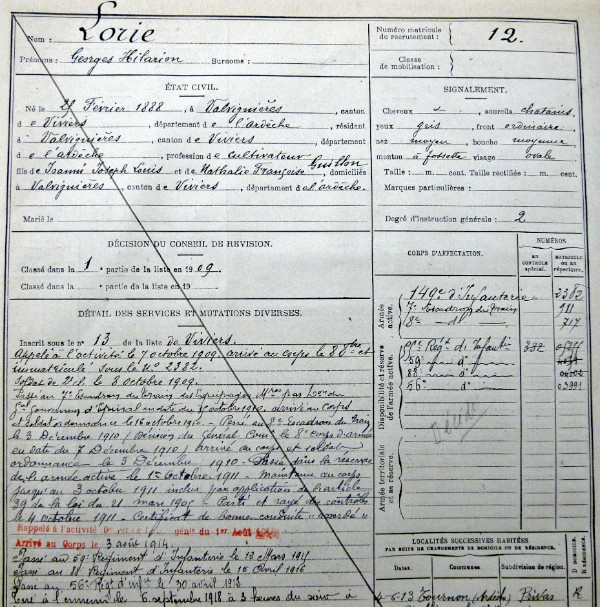 Nom : Lorie
Prénoms : Georges Hilarion Surnoms :
Numéro matricule du recrutement : 12.
Classe de mobilisation :
ÉTAT CIVIL.
Né le Février 1888, à Valvignières, canton
de Viviers, département de l'ardèche, résidant
à Valvignières, canton de Viviers, département
de l'ardèche, profession de cultivateur
fils de Joseph Louis et de Nathalie Françoise Guillon, domiciliés
à Valvignières, canton de Viviers, département de l'ardèche.
Marié le
SIGNALEMENT.
Cheveux sourcils chatains
yeux gris, front ordinaire
nez moyen, bouche moyenne
menton à fossette visage ovale
Taille : m. cent. Taille rectifiée : m. cent.
Marques particulières :
Degré d'instruction générale : 2
DÉCISION DU CONSEIL DE REVISION.
Classé dans la 1 partie de la liste en 1909.
Classé dans la partie de la liste en 19
DÉTAIL DES SERVICES ET MUTATIONS DIVERSES.
Inscrit sous le n° 13 de la liste de Viviers.
Appelé à l'activité le 7 octobre 1909. arrivé au corps le 8 et
immatriculé sous le n° 2382.
Soldat de 2e cl. le 8 octobre 1909.
Passé au Escadron du train des Equipages Mres par
Gal Gouverneur d'Epinal en date du octobre 1910, arrivé au Corps
et soldat ordonnance le 16 octobre 1910. - Passé au 8e Escadron du Train
le 3 Décembre 1910 (Décision du Général Comt le 8e Corps d'armée
en date du 7 Décembre 1910) arrivé au corps et soldat
ordonnance le 3 Décembre 1910 - Passé dans la réserve
de l'armée active le 1er Octobre 1911 - Maintenu au corps
jusqu'au 3 octobre 1911 inclus par application de l'article
39 de la loi du 21 mars 1905. Parti et rayé des contrôles
le 4 octobre 1911 - Certificat de bonne conduite "accordé"
Rappelé à l'activité génle du 1er Août
Arrivé au Corps le 3 août 1914
Passé au 59e Régiment d'Infanterie le 13 Mars
Passé au Régiment d'Infanterie le 15 Avril 1916
Passé au 56e Régt d'infie le 30 avril 1918
Tué à l'ennemi le 6 septembre 1918 à 3 heures du soir à
CORPS D'AFFECTATION.
NUMÉROS
AU CONTRÔLE spécial.
MATRICULE ou au répertoire.
Armée active.
149e d'Infanterie 2382
Escadron du Train 111
8e d° 717
Disponibilité et réserve de l'armée active.
Régt d'Infantie 332
59e d°
88e d°
56e d° 03991
Décédé
Armée territoriale et sa réserve.
LOCALITÉS SUCCESSIVES HABITÉES
PAR SUITE DE CHANGEMENTS DE DOMICILE OU DE RÉSIDENCE.
Dates. Communes. Subdivision de région. D. DOMICILE R. RÉSIDENCE
6-13 Tournon (Ardèche) Privas R